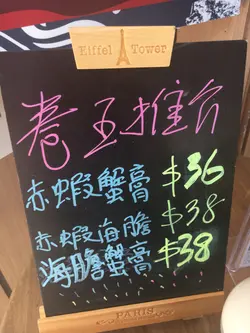 Eiffel Tower
卷王推介
赤蝦蟹膏 $36
赤蝦海膽 $38
海膽蟹膏 $38
PARIS